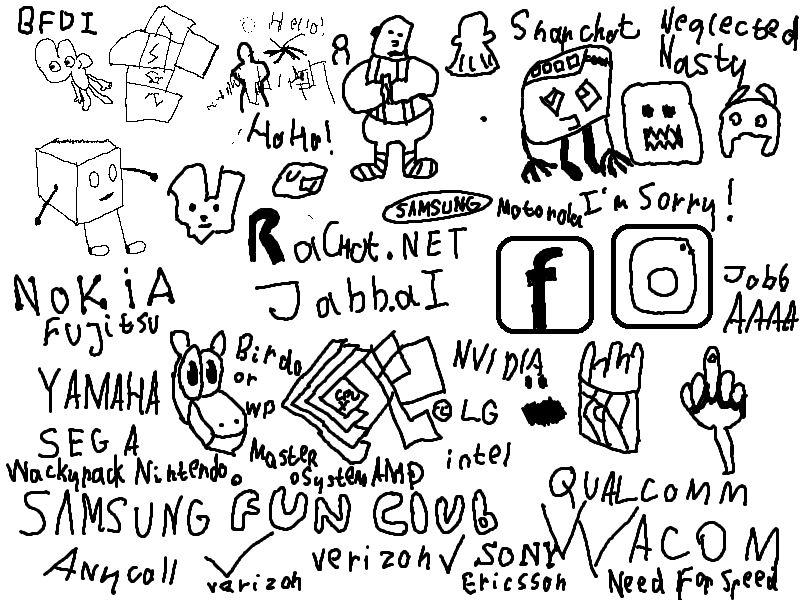 BFDI
Hello!
Snapchat
Neglected
Nasty
HoHo!
SAMSUNG
Motorola
I'm Sorry!
RaChat.NET
JabbaI
Jabb
AAAA
NOKiA
Fujitsu
Birdo
or
wp
NVIDIA
YAMAHA
CPU
LG
SEGA
Master
System
AMD
intel
Wackypack Nintendo
QUALCOMM
SAMSUNG FUN Club
WACOM
Anycall
verizon
verizon
SONY
Ericsson
Need For Speed